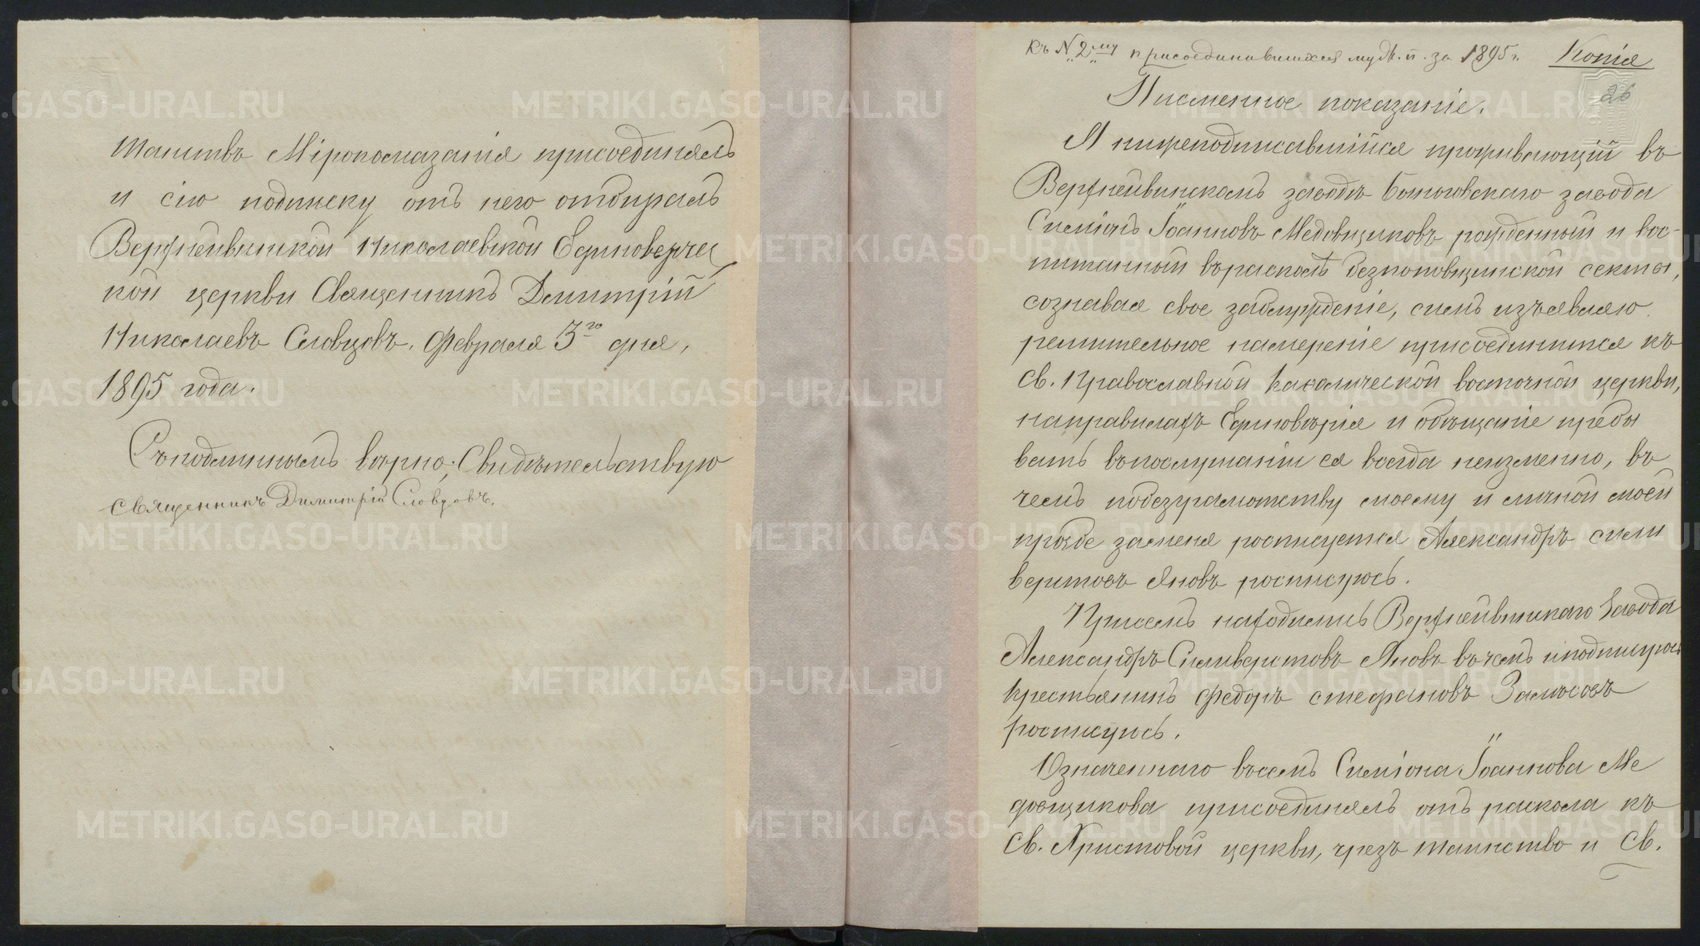 таинствъ Мѵропомазанія присоединялъ
и сію подписку отъ него отбиралъ
Верхнейвинской Николаевской Единоверчес
кой церкви Священникъ Димитрій
Николаевъ Словцовъ. Февраля 3го дня,
1895 года.
Съ подлиннымъ вѣрно; Свидѣтельствую
священникъ Димитрій Словцовъ.
Къ №2му присоединившихся муж. п. за 1895 г. Копія
26
Писменное показаніе.
Я нижеподписавшійся проживающій въ
Верхнейвинскомъ заводѣ завода
Симіонъ Іоанновъ Медовщиковъ рожденный и вос-
питанный въ расколѣ безпоповщинской секты,
сознавая свое заблужденіе, симъ изъявляю
решительное намереніе присоединится къ
Св. Православной Каѳолической восточной церкви,
на правилахъ Единовѣрія и обѣщаніе пребы
вать въ послушаніи ея всегда неизменно, въ
чемъ по безграмотству моему и личной моей
прозбе за меня росписуется Александръ Сили
верстовъ Яновъ росписуюсь.
При семъ находились Верхнейвинскаго завода
Александръ Силиверстовъ Яновъ въ чемъ и подписуюсь
Крестьянинъ Федоръ Стефановъ
росписуюсь.
Означеннаго въ семъ Симіона Іоаннова Ме
довщикова присоединялъ отъ раскола къ
Св. Христовой церкви, чрезъ таинство и Св.
METRIKI.GASO-URAL.RU